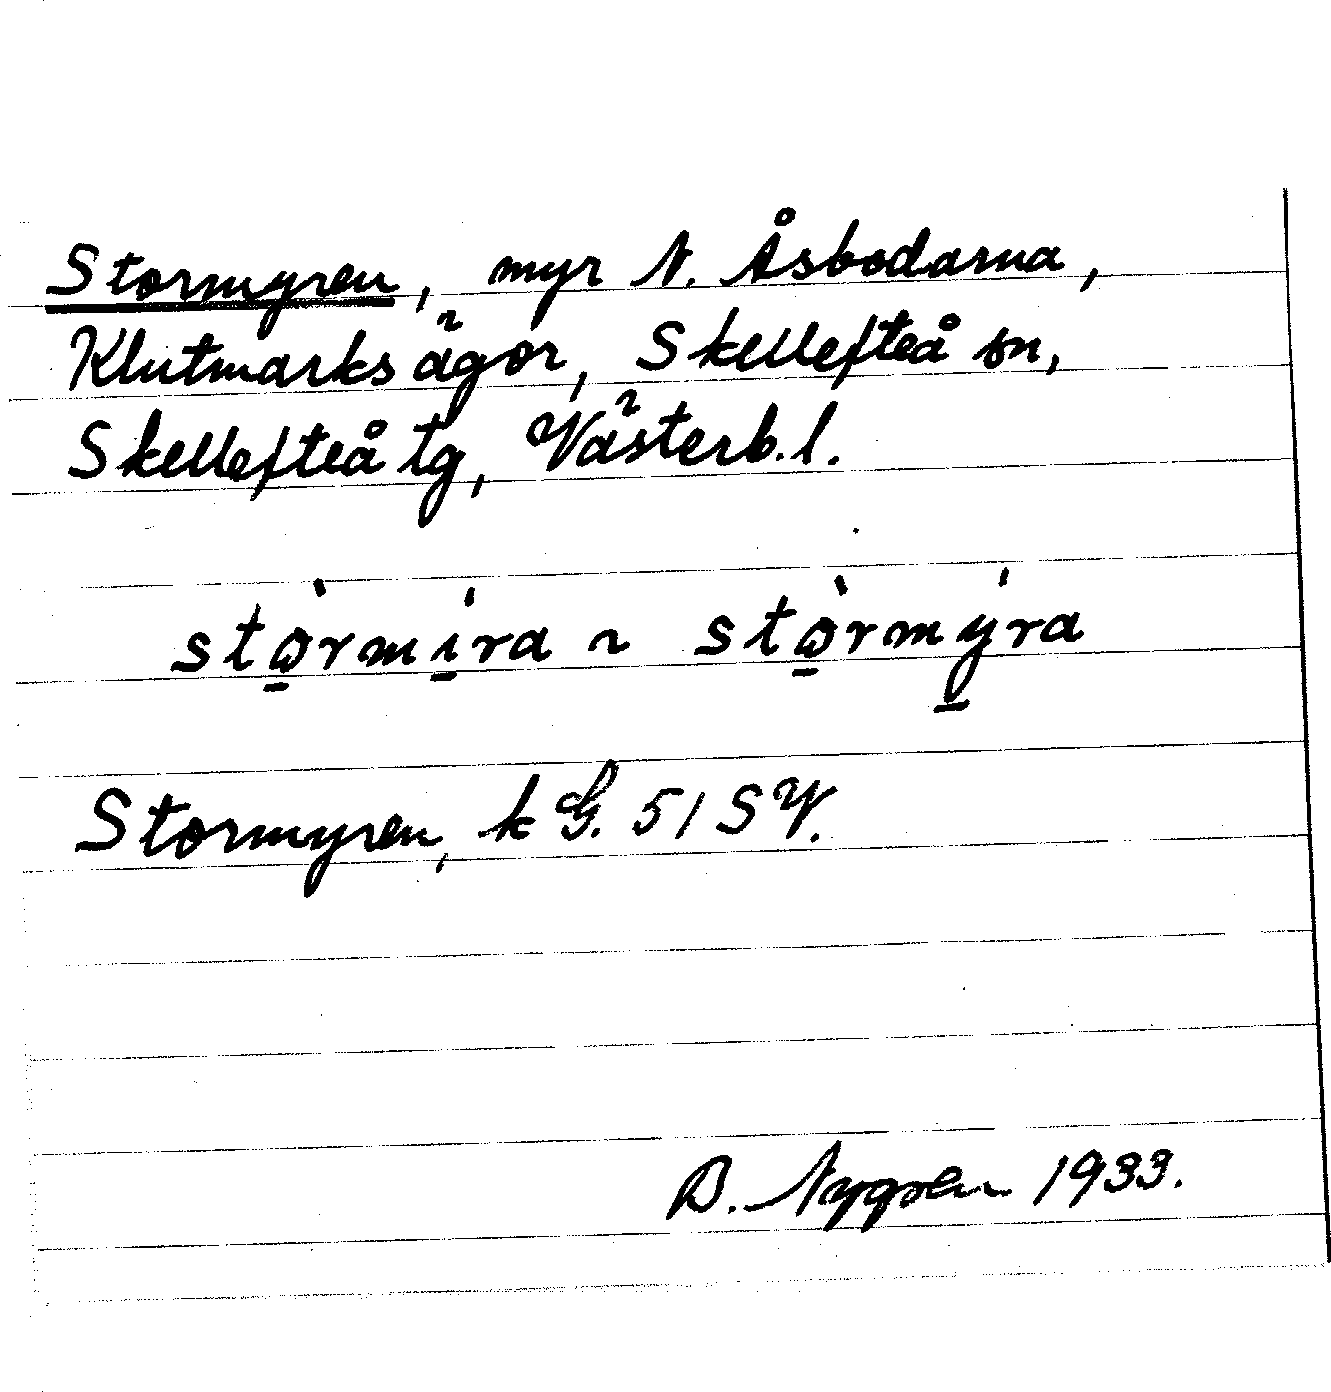 Stormyren, myr N. Åsbodarna,
Klutmarks ägor, Skellefteå sn,
Skellefteå tg, Västerb. l.
stò̱rmí̱ra ~ stò̱rmý̱ra
Stormyren, k G. 51 SV.
B. Nygren 1933.